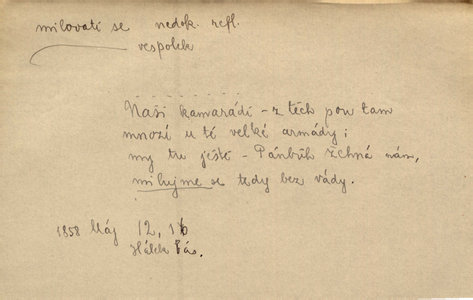 milovati se nedok. refl.
vespolek
Naši kamarádi - z těch jsou tam
mnozí u té velké armády;
my tu ještě - Pánbůh žehná nám,
milujme se tedy bez vády.
1858 Máj 12, 16
Hálek Bás.